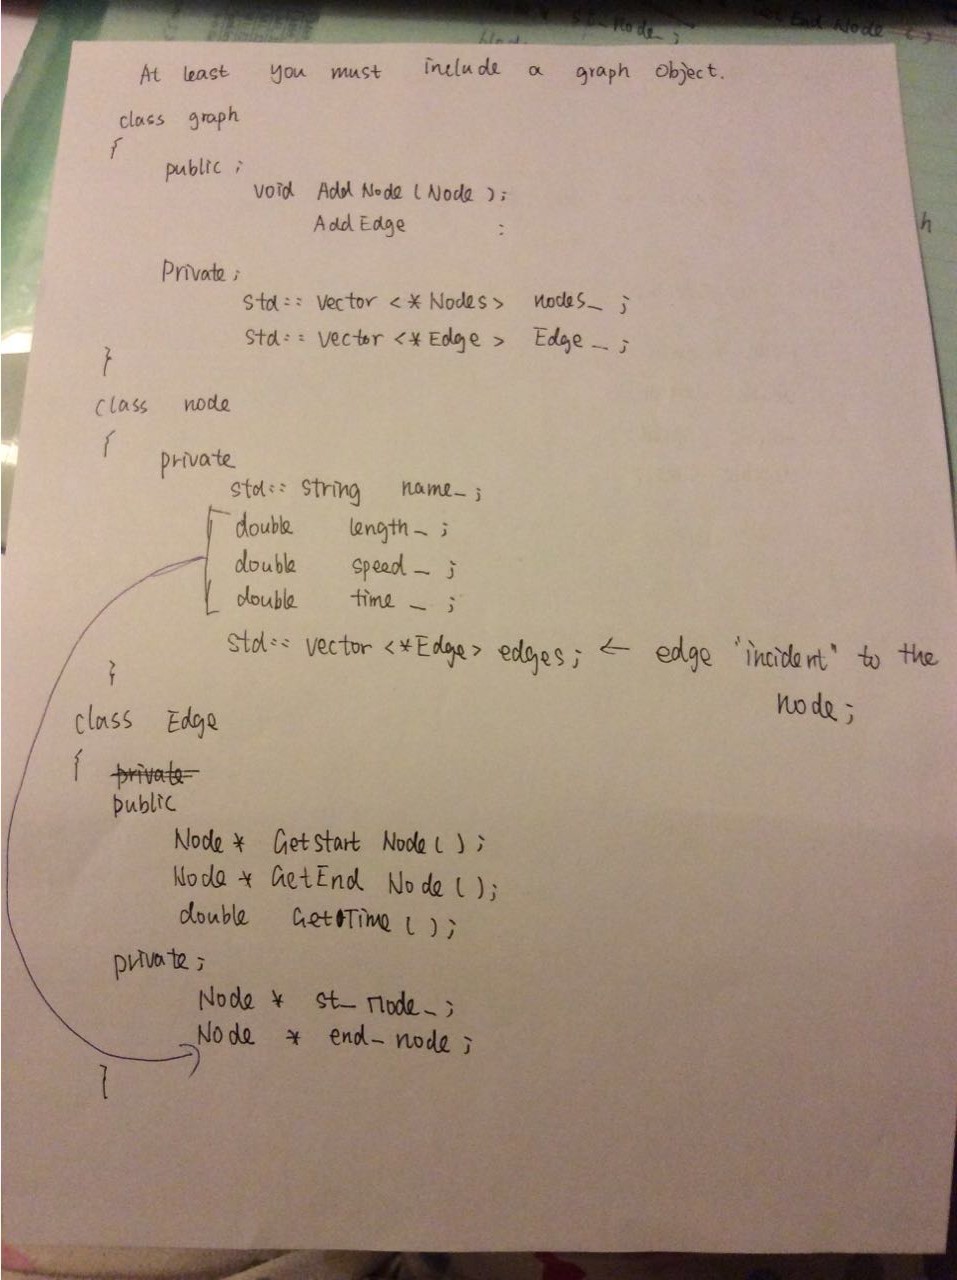 st_node_;
End Node ( );
At least you must include a graph object.
class graph
{
public ;
void Add Node ( Node );
Add Edge :
Private ;
std:: vector <* Nodes> nodes_ ;
std:: vector <* Edge > Edge_ ;
}
class node
{
private
std:: string name_ ;
double length_ ;
double speed_ ;
double time_ ;
std:: vector <*Edge> edges ; ← edge "incident" to the
node ;
}
class Edge
{ private
public
Node * Getstart Node ( ) ;
Node * GetEnd Node ( ) ;
double Get Time ( ) ;
private ;
Node * st_ node_ ;
Node * end_ node ;
}